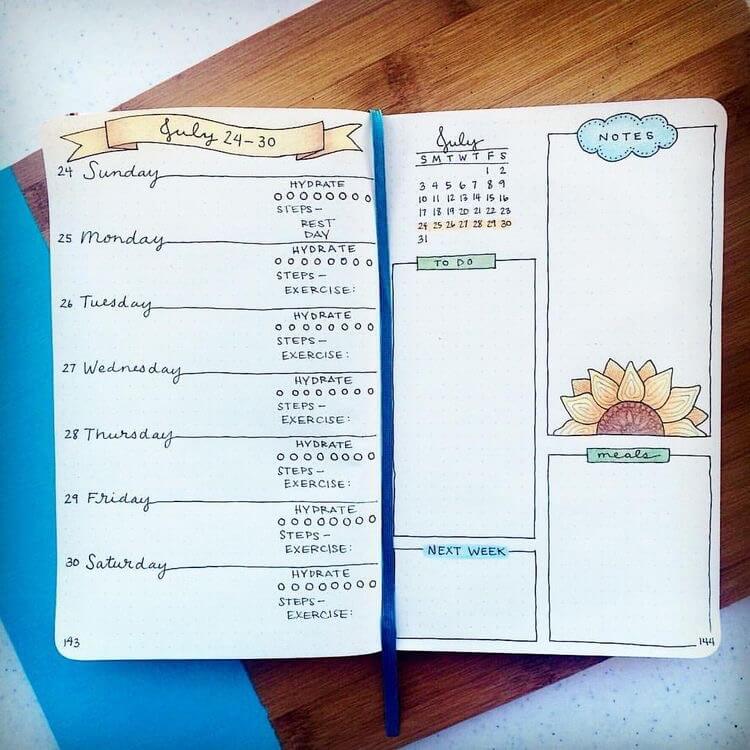 July 24-30
24 Sunday
HYDRATE
STEPS-
REST
DAY
25 Monday
HYDRATE
STEPS-
EXERCISE:
26 Tuesday
HYDRATE
STEPS-
EXERCISE:
27 Wednesday
HYDRATE
STEPS-
EXERCISE:
28 Thursday
HYDRATE
STEPS-
EXERCISE:
29 Friday
HYDRATE
STEPS-
EXERCISE:
30 Saturday
HYDRATE
STEPS-
EXERCISE:
143
July
S M T W T F S
1 2
3 4 5 6 7 8 9
10 11 12 13 14 15 16
17 18 19 20 21 22 23
24 25 26 27 28 29 30
31
TO DO
NEXT WEEK
NOTES
meals
144